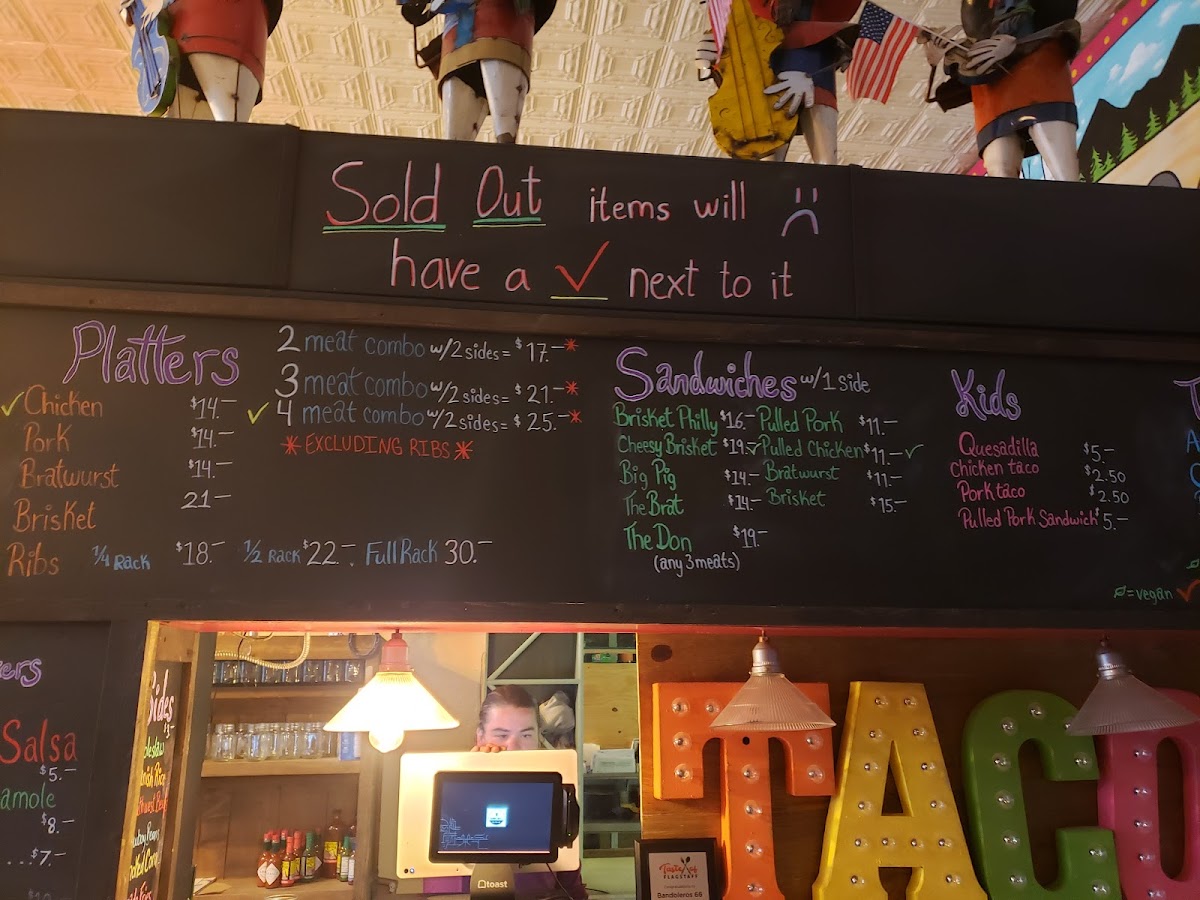 Sold Out items will
have a ✓ next to it
Platters
✓ Chicken $14.-
Pork $14.-
Bratwurst $14.-
Brisket 21-
Ribs 1/4 Rack $18.- 1/2 Rack $22.- Full Rack 30.-
2 meat combo w/2 sides = $17.-*
3 meat combo w/2 sides = $21.-*
✓ 4 meat combo w/2 sides = $25.-*
*EXCLUDING RIBS*
Sandwiches w/1 side
Brisket Philly $16.-
Cheesy Brisket $19.-
Big Pig $14.-
The Brat $14.-
The Don $19.-
(any 3 meats)
Pulled Pork $11.-
✓ Pulled Chicken $11.- ✓
Bratwurst $11.-
Brisket $15.-
Kids
Quesadilla $5.-
Chicken taco $2.50
Pork taco $2.50
Pulled Pork Sandwich $5.-
=vegan
ers
Salsa
$5.-
amole
$8.-
....$7.-
Sides
toast
TACO
Taste of
FLAGSTAFF
Bandoleros 66